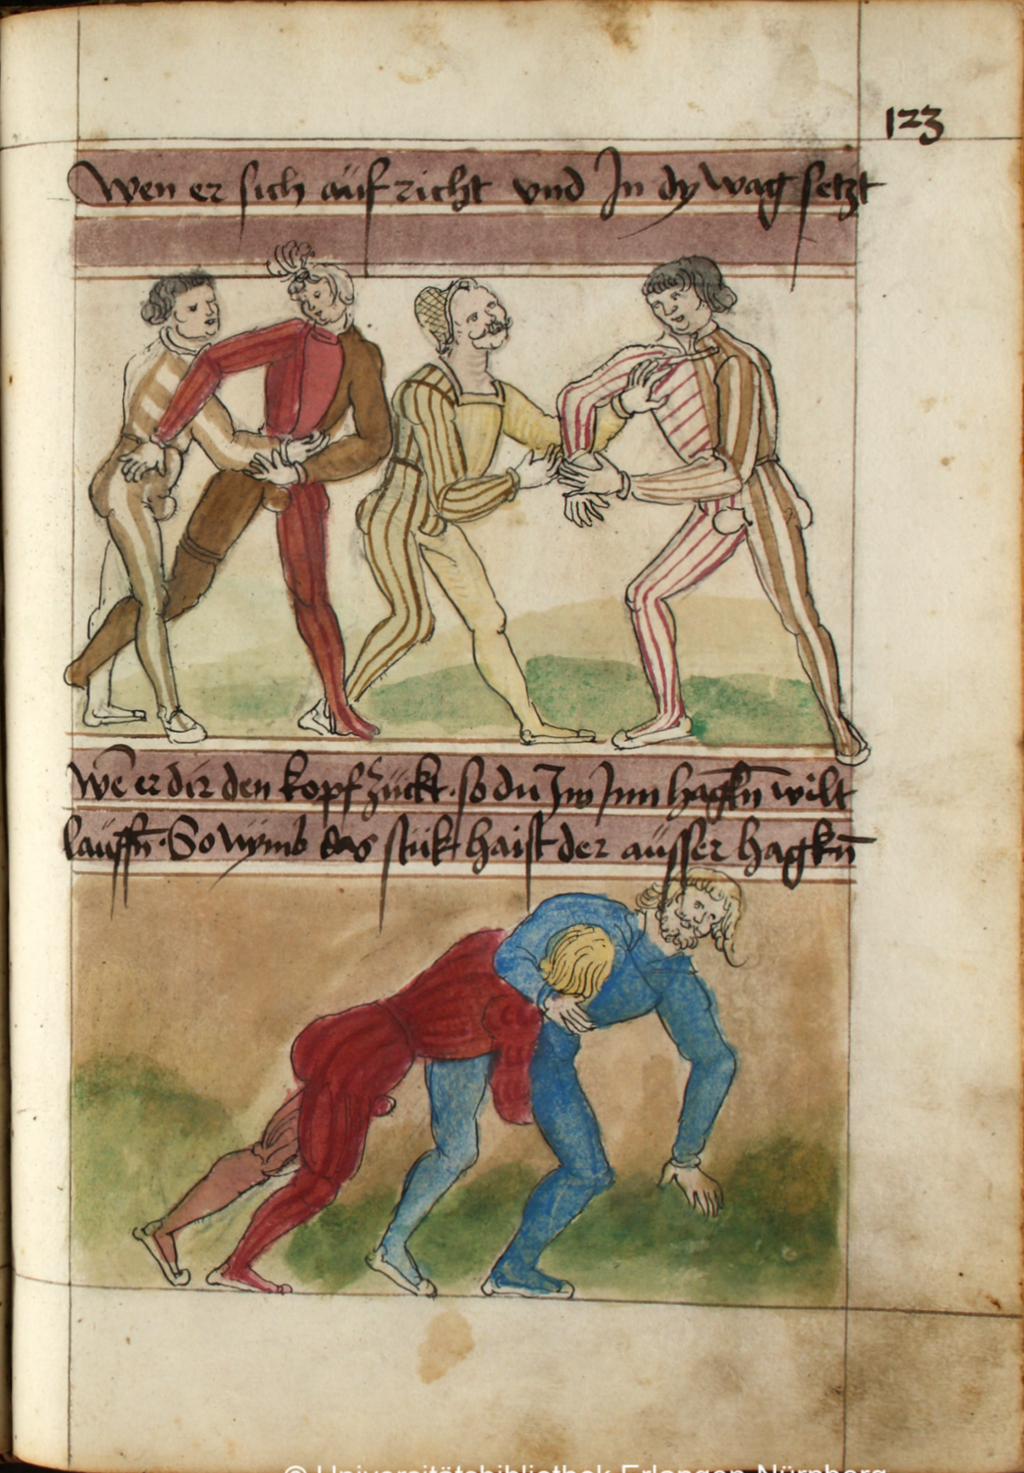 123
Wen er sich auf richt vnd In dy wag setzt
We͂ er dir den kopf zückt · so du Im Inn hagkn̄ wilt
lauffn̄ · So nymb das stuk haist der ausser hagkn̄
© Universitätsbibliothek Erlangen-Nürnberg